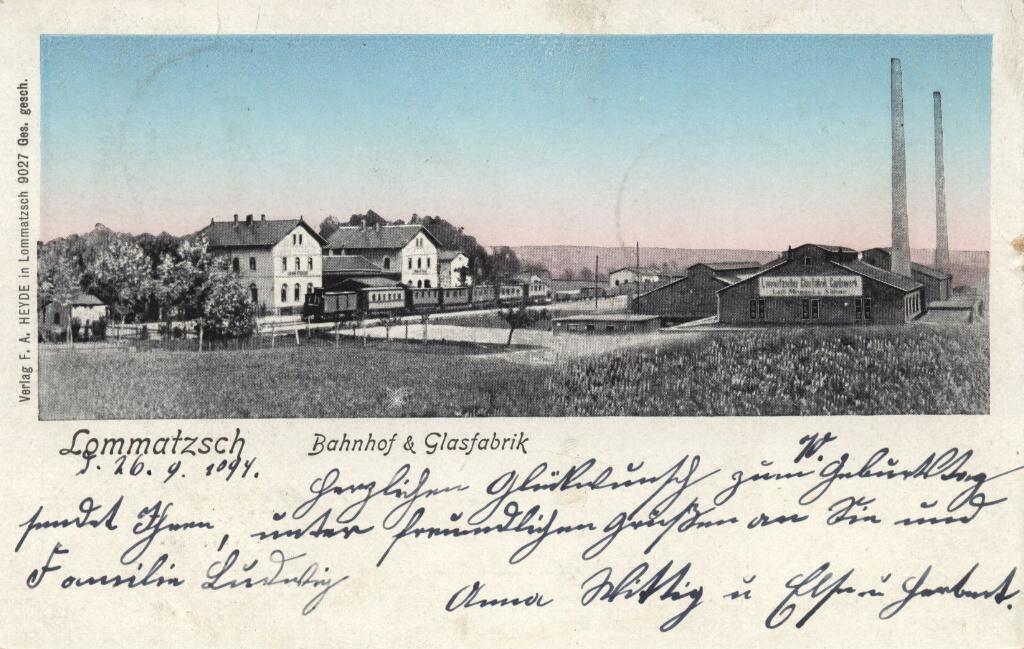 Verlag F. A. HEYDE in Lommatzsch 9027 Ges. gesch.
Lommatzscher Glasfabrik
Lommatzsch
Bahnhof & Glasfabrik
26. 9.
Herzlichen Glückwunsch zum W. Geburtstag
sendet Ihnen, unter freundlichen Grüßen an Sie und
Familie Ludwig
Anna Wittig u Else u Herbert.